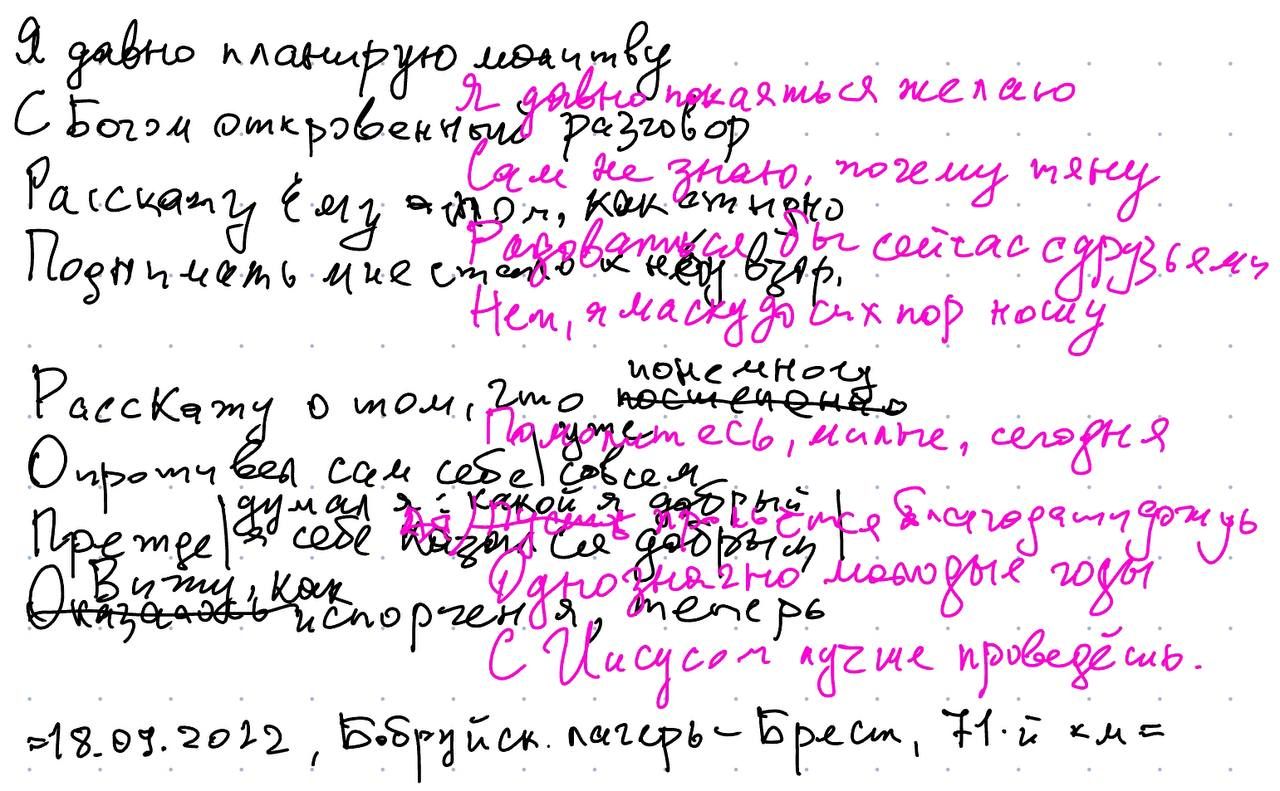 Я давно планирую молитву
Я давно покаяться желаю
С Богом откровенный разговор
Сам не знаю, почему тяну
Расскажу Ему о том, как стыдно
Радоваться бы сейчас с друзьями
Поднимать мне стало к нему взор.
Нет, я маску до сих пор ношу
понемногу
Расскажу о том, что постепенно
уже
Помолитесь, милые, сегодня
Опротивел сам себе совсем
думал я: какой я добрый
Прежде я себе казался добрым
Пусть прольётся благодати дождь
Вижу, как
Однозначно молодые годы
Оказалось испорчен я, теперь
С Иисусом лучше проведёшь.
=18.09.2022, Бобруйск. лагерь – Брест, 71-й км=